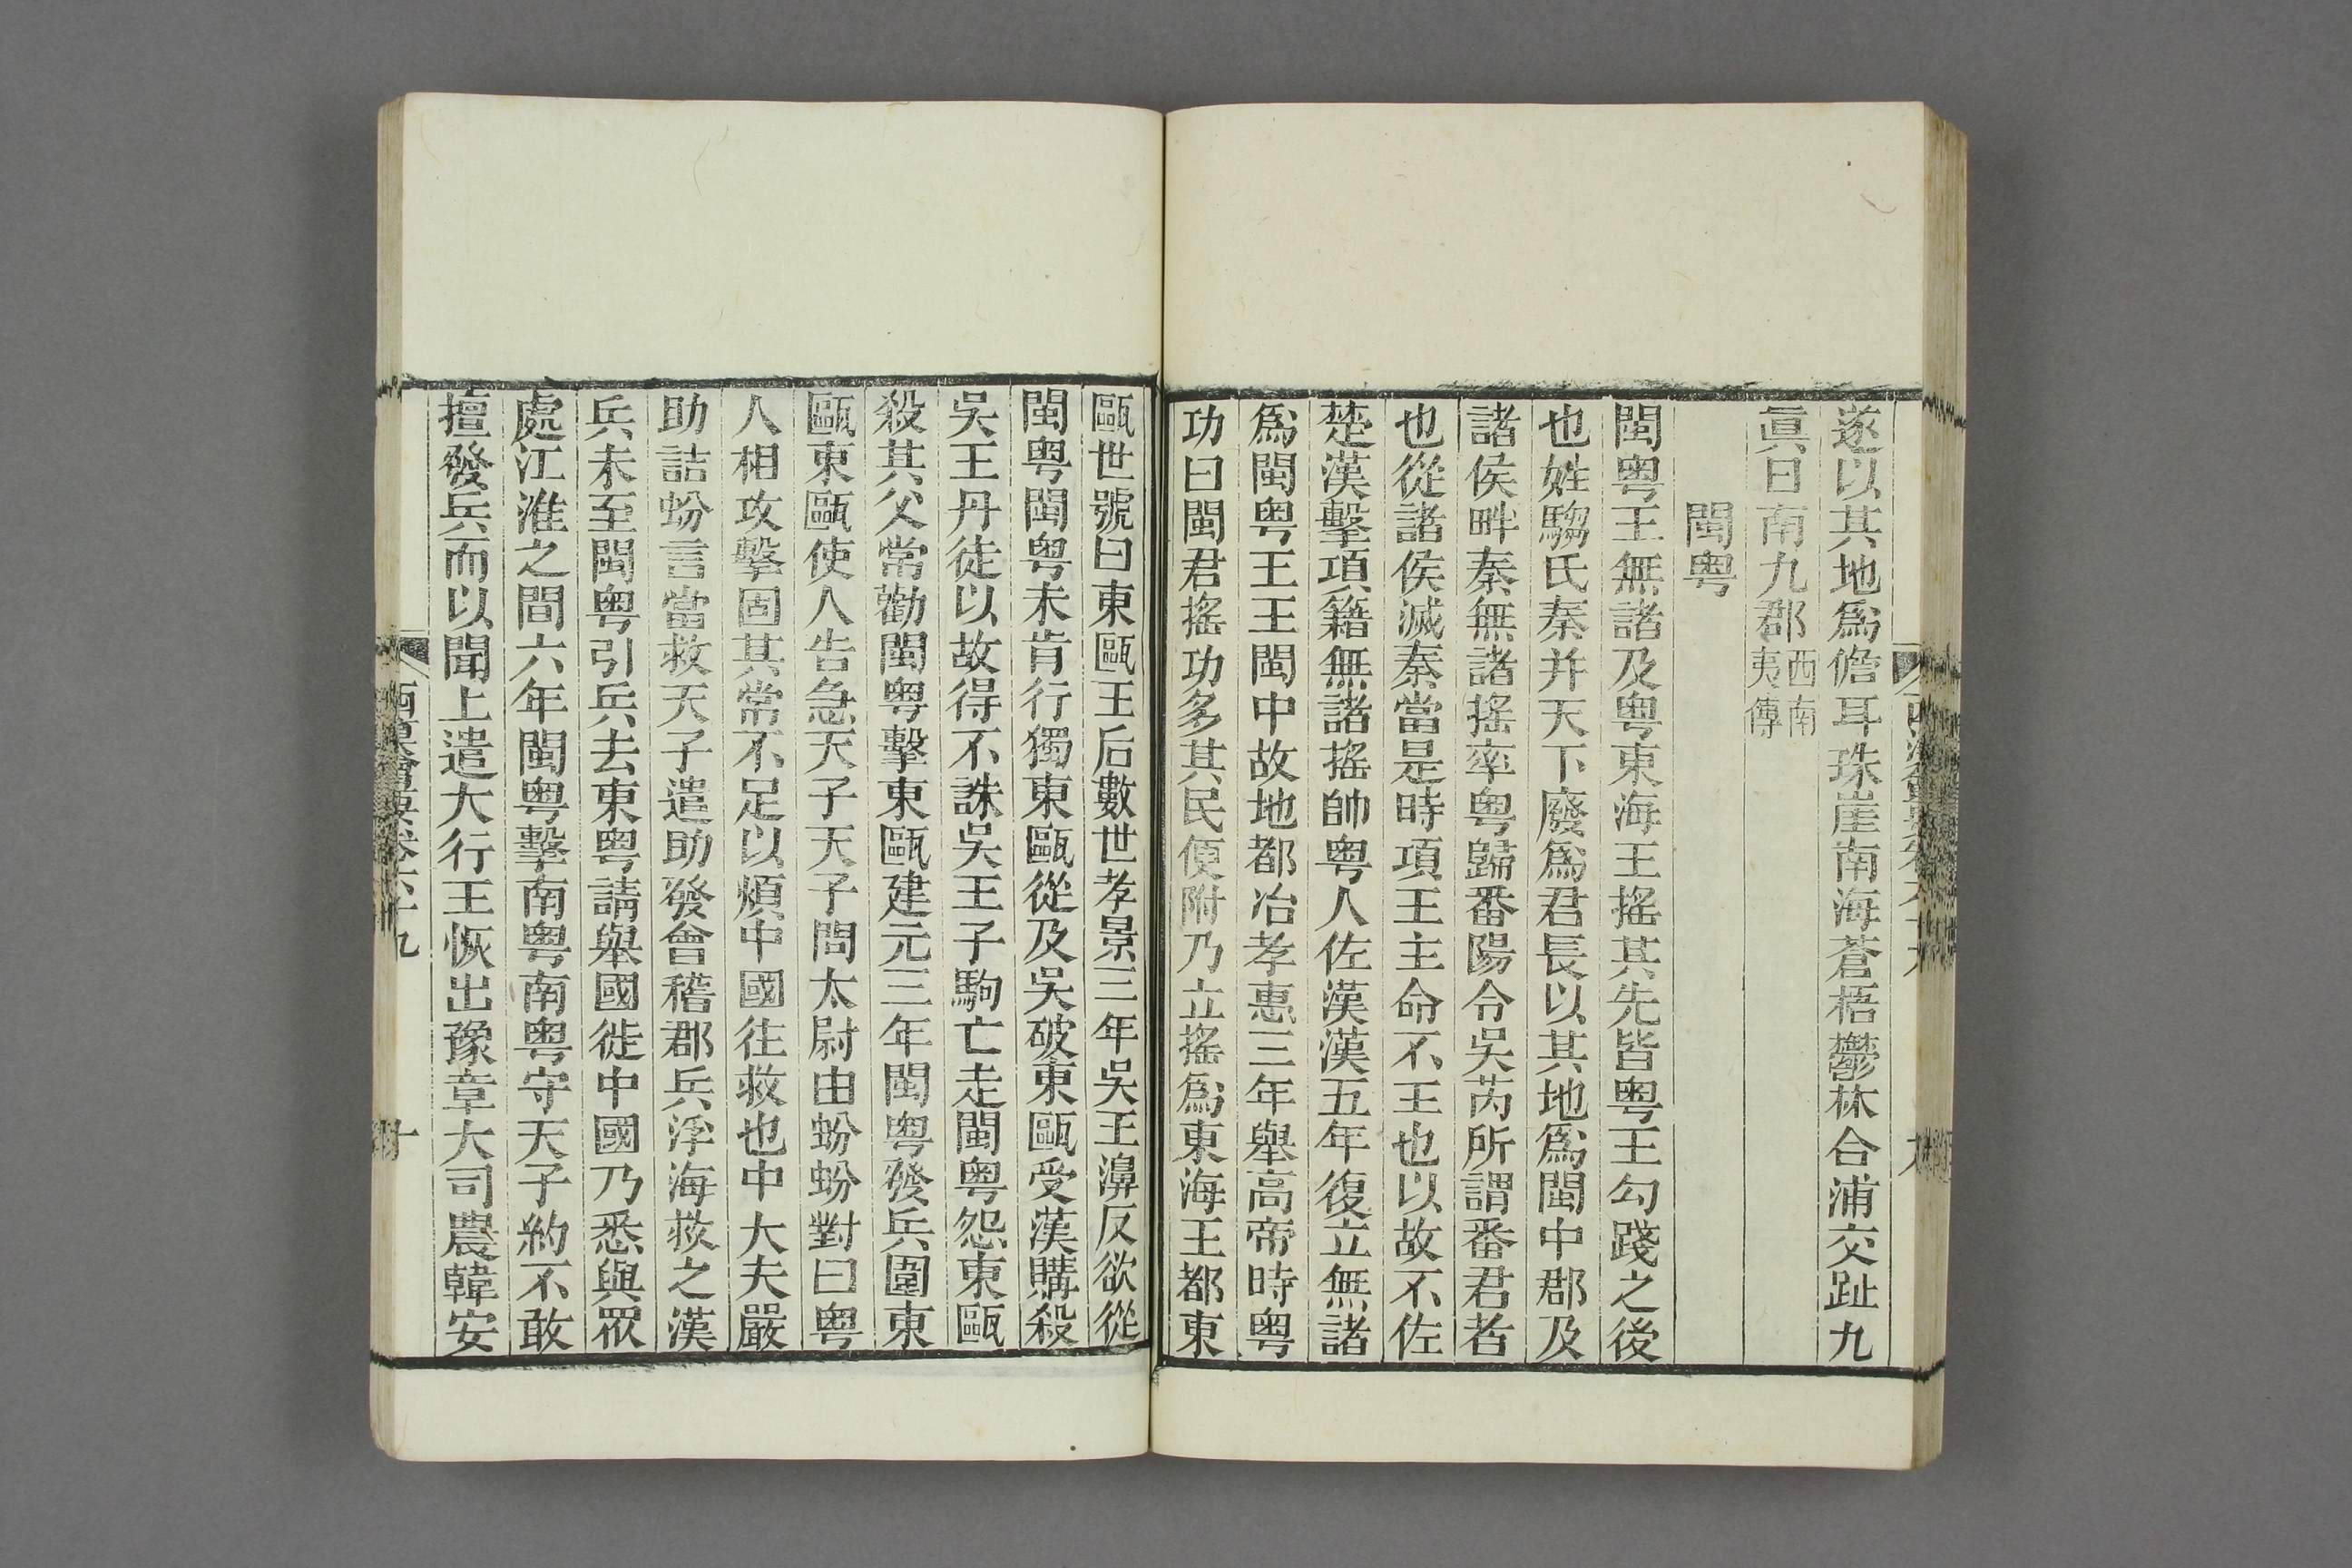 遂以其地爲儋耳珠崖南海蒼梧鬱林合浦交趾九
眞日南九郡西南
夷傳
閩粤
閩粤王無諸及粤東海王搖其先皆粤王勾踐之後
也姓騶氏秦并天下廢爲君長以其地爲閩中郡及
諸侯畔秦無諸搖率粤歸番陽令吳芮所謂番君者
也從諸侯滅秦當是時項王主命不王也以故不佐
楚漢擊項籍無諸搖帥粤人佐漢漢五年復立無諸
爲閩粤王王閩中故地都冶孝惠三年舉高帝時粤
功曰閩君搖功多其民便附乃立搖爲東海王都東
甌世號曰東甌王后數世孝景三年吳王濞反欲從
閩粤閩粤未肯行獨東甌從及吳破東甌受漢購殺
吳王丹徒以故得不誅吳王子駒亡走閩粤怨東甌
殺其父常勸閩粤擊東甌建元三年閩粤發兵圍東
甌東甌使人告急天子天子問太尉田蚡蚡對曰粤
人相攻擊固其常不足以煩中國往救也中大夫嚴
助詰蚡言當救天子遣助發會稽郡兵浮海救之漢
兵未至閩粤引兵去東粤請舉國徙中國乃悉與眾
處江淮之間六年閩粤擊南粤南粤守天子約不敢
擅發兵而以聞上遣大行王恢出豫章大司農韓安
西漢會要卷六十九
十